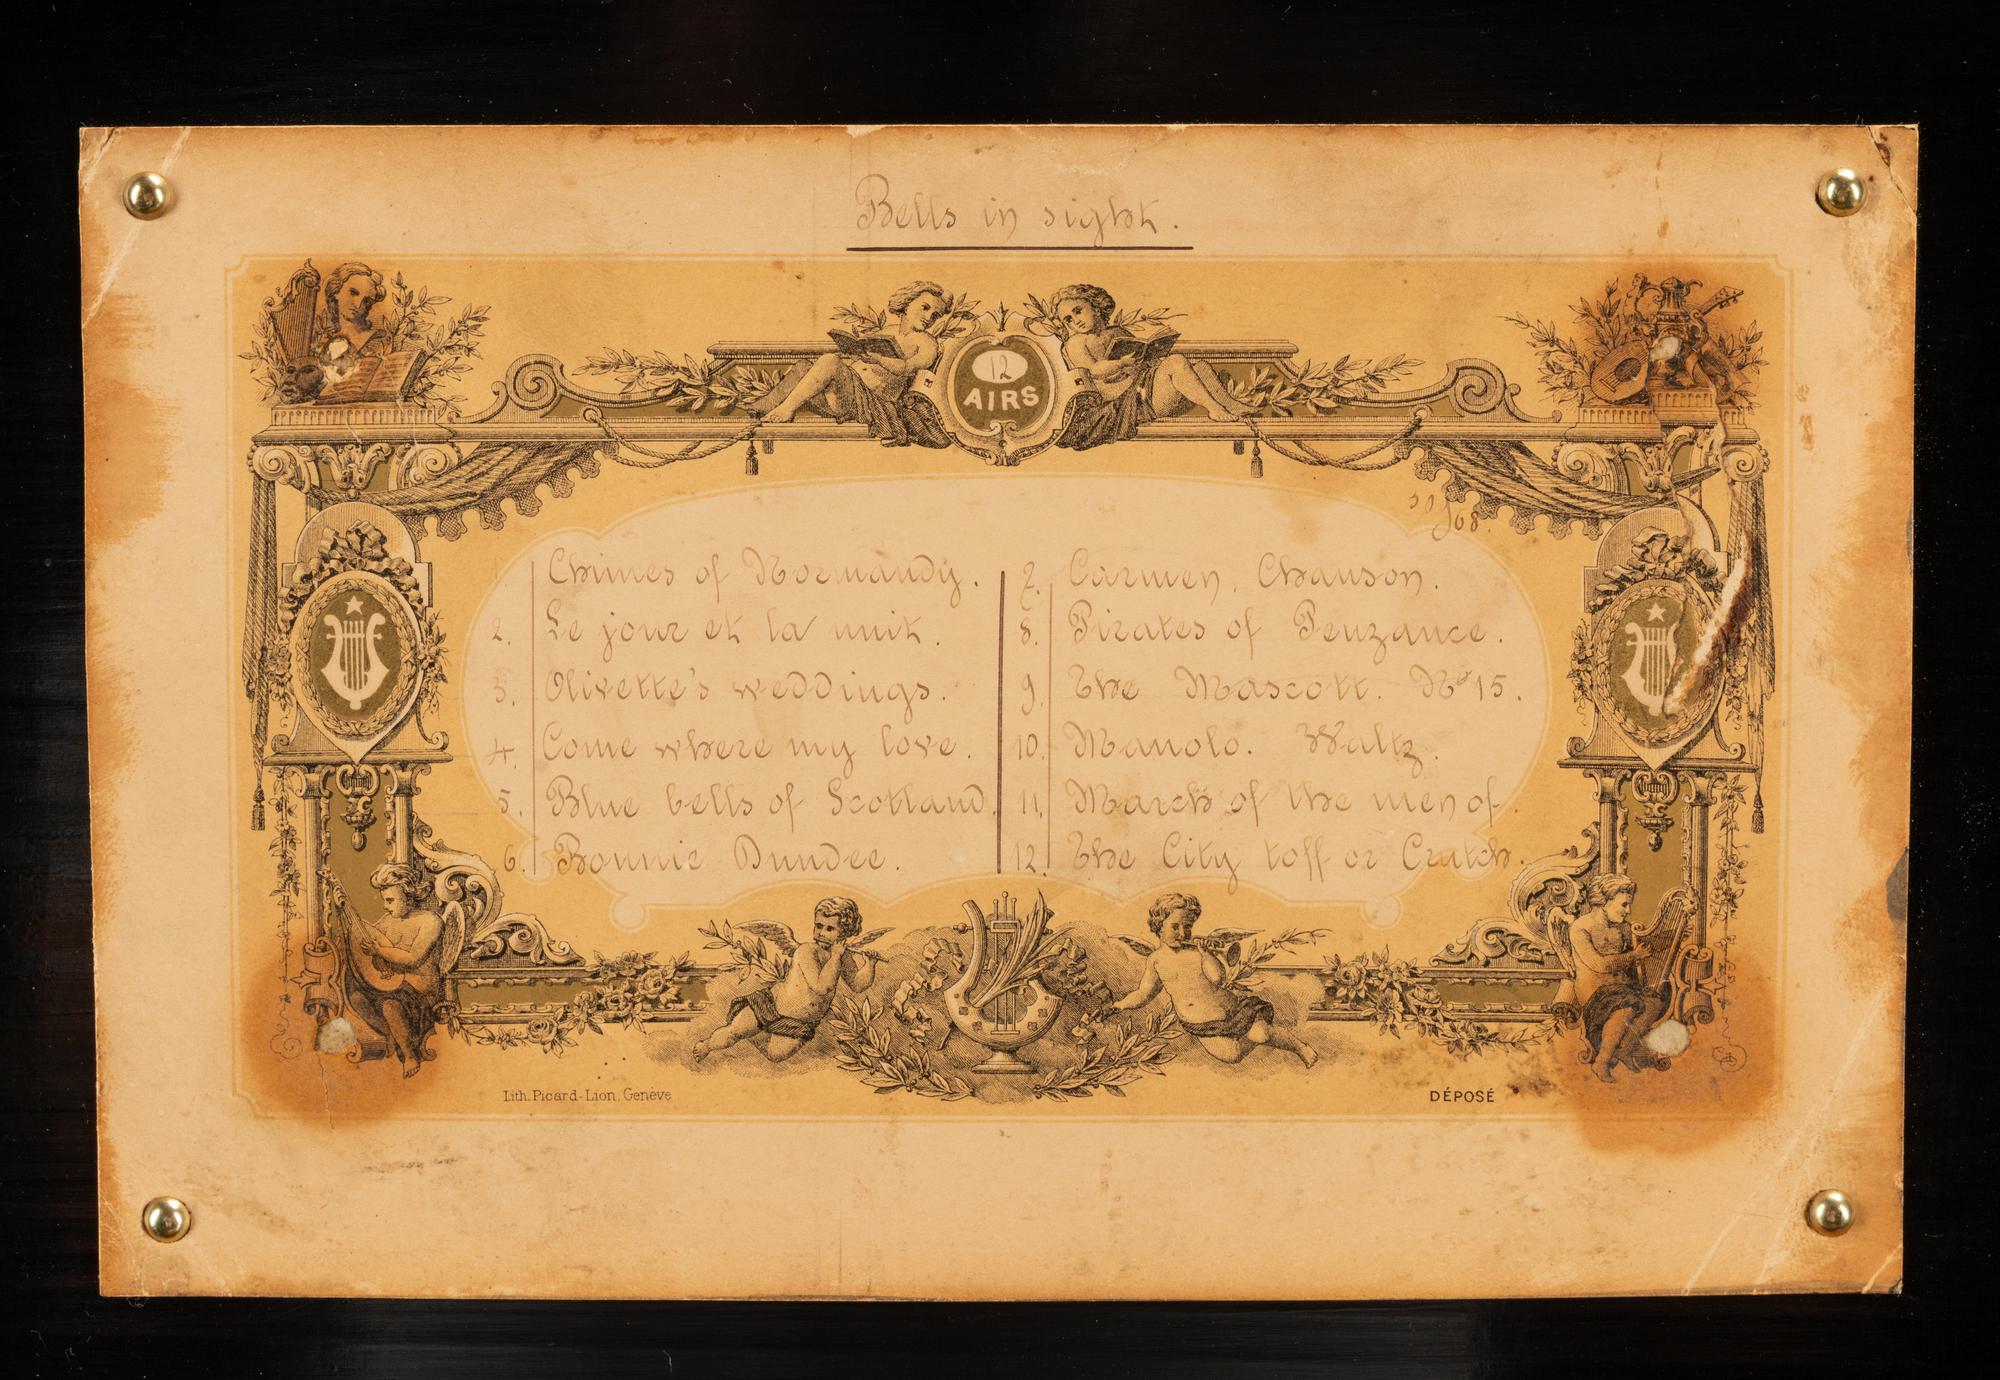 Bells in sight.
12
AIRS
Chimes of Normandy.
2. Le jour et la nuit.
3. Olivette's weddings.
4. Come where my love.
5. Blue bells of Scotland.
6. Bonnie Dundee.
7. Carmen, Chanson.
8. Pirates of Penzance.
9. The Mascott. No 15.
10. Manolo. Waltz.
11. March of the men of.
12. The City toff or Crutch.
Lith. Picard-Lion, Genève
DÉPOSÉ